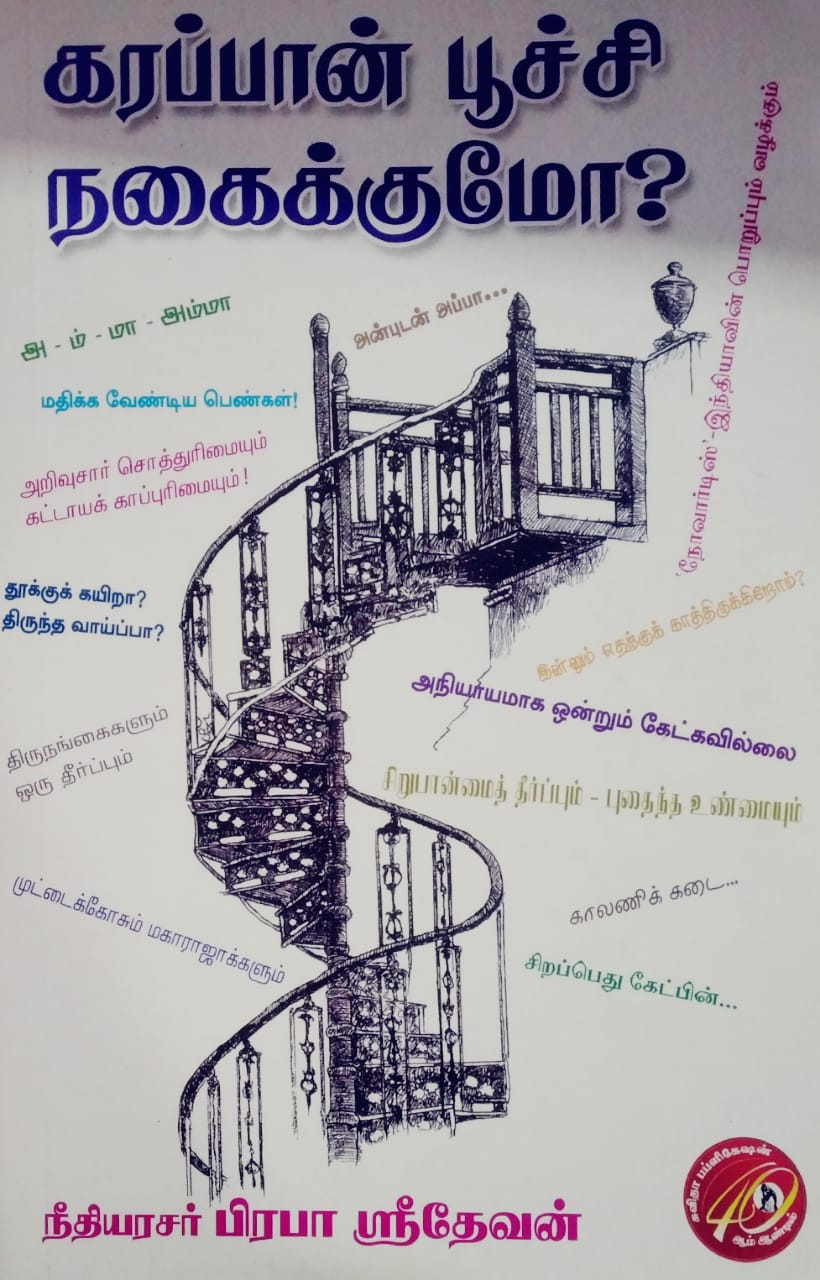 கரப்பான் பூச்சி
நகைக்குமோ?
'நோவார்டிஸ்'-இந்தியாவின் பொறுப்பும் வழக்கும்
அ - ம் - மா - அம்மா
அன்புடன் அப்பா...
மதிக்க வேண்டிய பெண்கள்!
அறிவுசார் சொத்துரிமையும்
கட்டாயக் காப்புரிமையும்!
தூக்குக் கயிறா?
திருந்த வாய்ப்பா?
இன்னும் எதற்குக் காத்திருக்கிறோம்?
அநியாயமாக ஒன்றும் கேட்கவில்லை
திருநங்கைகளும்
ஒரு தீர்ப்பும்
சிறுபான்மைத் தீர்ப்பும் - புதைந்த உண்மையும்
முட்டைக்கோசும் மகாராஜாக்களும்
காலணிக் கடை...
சிறப்பெது கேட்பின்...
நீதியரசர் பிரபா ஸ்ரீதேவன்
கவிதா பப்ளிகேஷன்
40
ஆம் ஆண்டில்